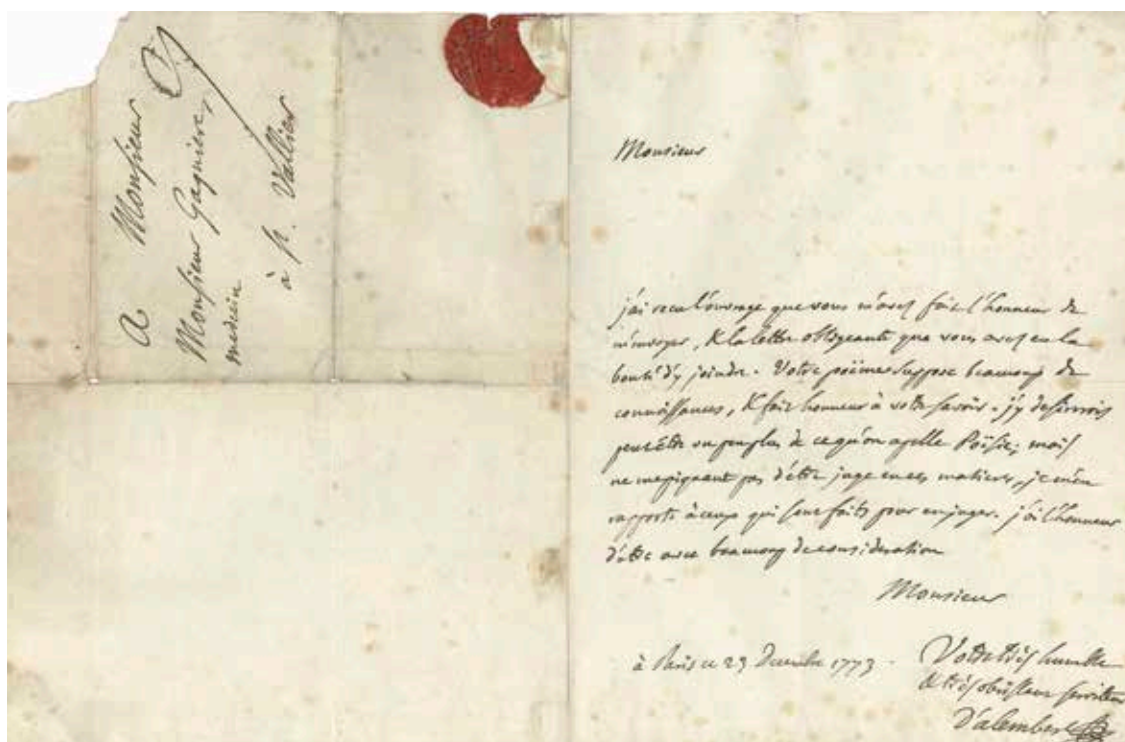 A Monsieur
Monsieur Gagniere,
medecin
à St. Vallier
Monsieur
j'ai recu l'ouvrage que vous m'avez fait l'honneur de
m'envoyer, & la lettre obligeante que vous avez eu la
bonté d'y joindre. Votre poëme suppose beaucoup de
connoissances, & fait honneur à votre savoir. j'y desirerois
peutêtre un peu plus de ce qu'on apelle Poësie; mais
ne me piquant pas d'être juge en ces matieres, je m'en
rapporte à ceux qui sont faits pour en juger. j'ai l'honneur
d'être avec beaucoup de consideration
Monsieur
à Paris ce 23 Decembre 1773.
Votre très humble
& très obeissant serviteur
D'alembert